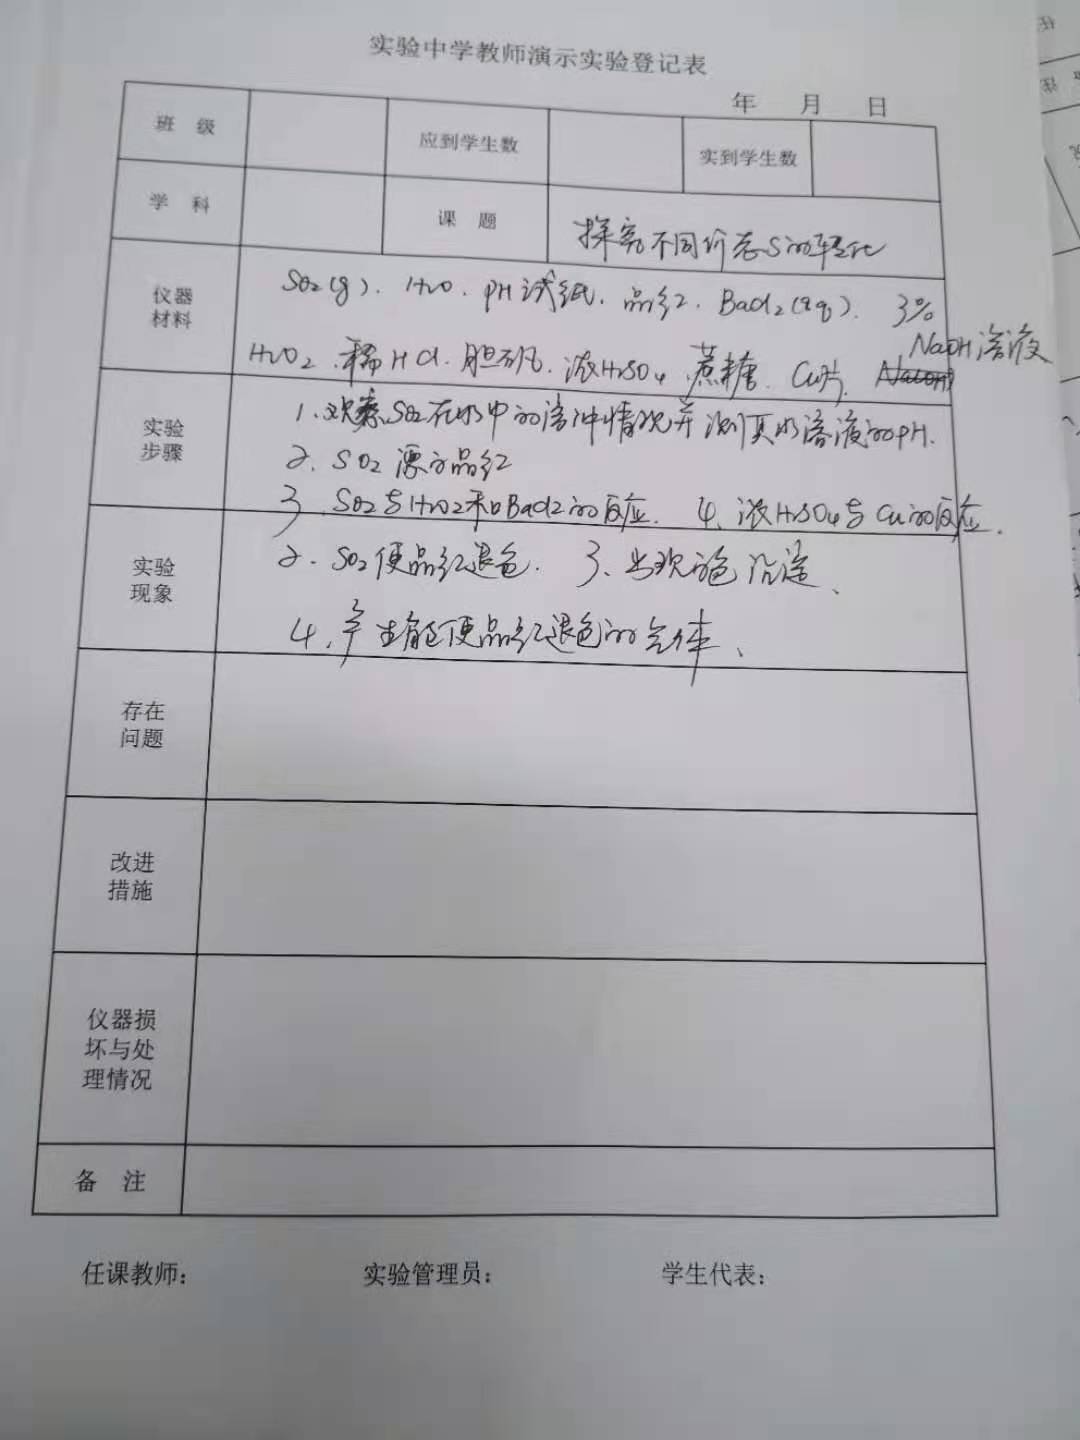 实验中学教师演示实验登记表
年 月 日
班 级 应到学生数 实到学生数
学 科 课 题 探究不同价态S的转化
仪器材料 SO2(g)、H2O、PH试纸、品红、BaCl2(aq)、3%
H2O2、稀HCl、胆矾、浓H2SO4、蔗糖、Cu片、NaOH溶液
实验步骤 1、观察SO2在水中的溶解情况并测其水溶液的PH.
2、SO2漂白品红
3、SO2与H2O2和BaCl2的反应. 4、浓H2SO4与Cu的反应.
实验现象 2、SO2使品红退色. 3、出现白色沉淀、
4、产生能使品红退色的气体、
存在问题
改进措施
仪器损坏与处理情况
备 注
任课教师: 实验管理员: 学生代表: